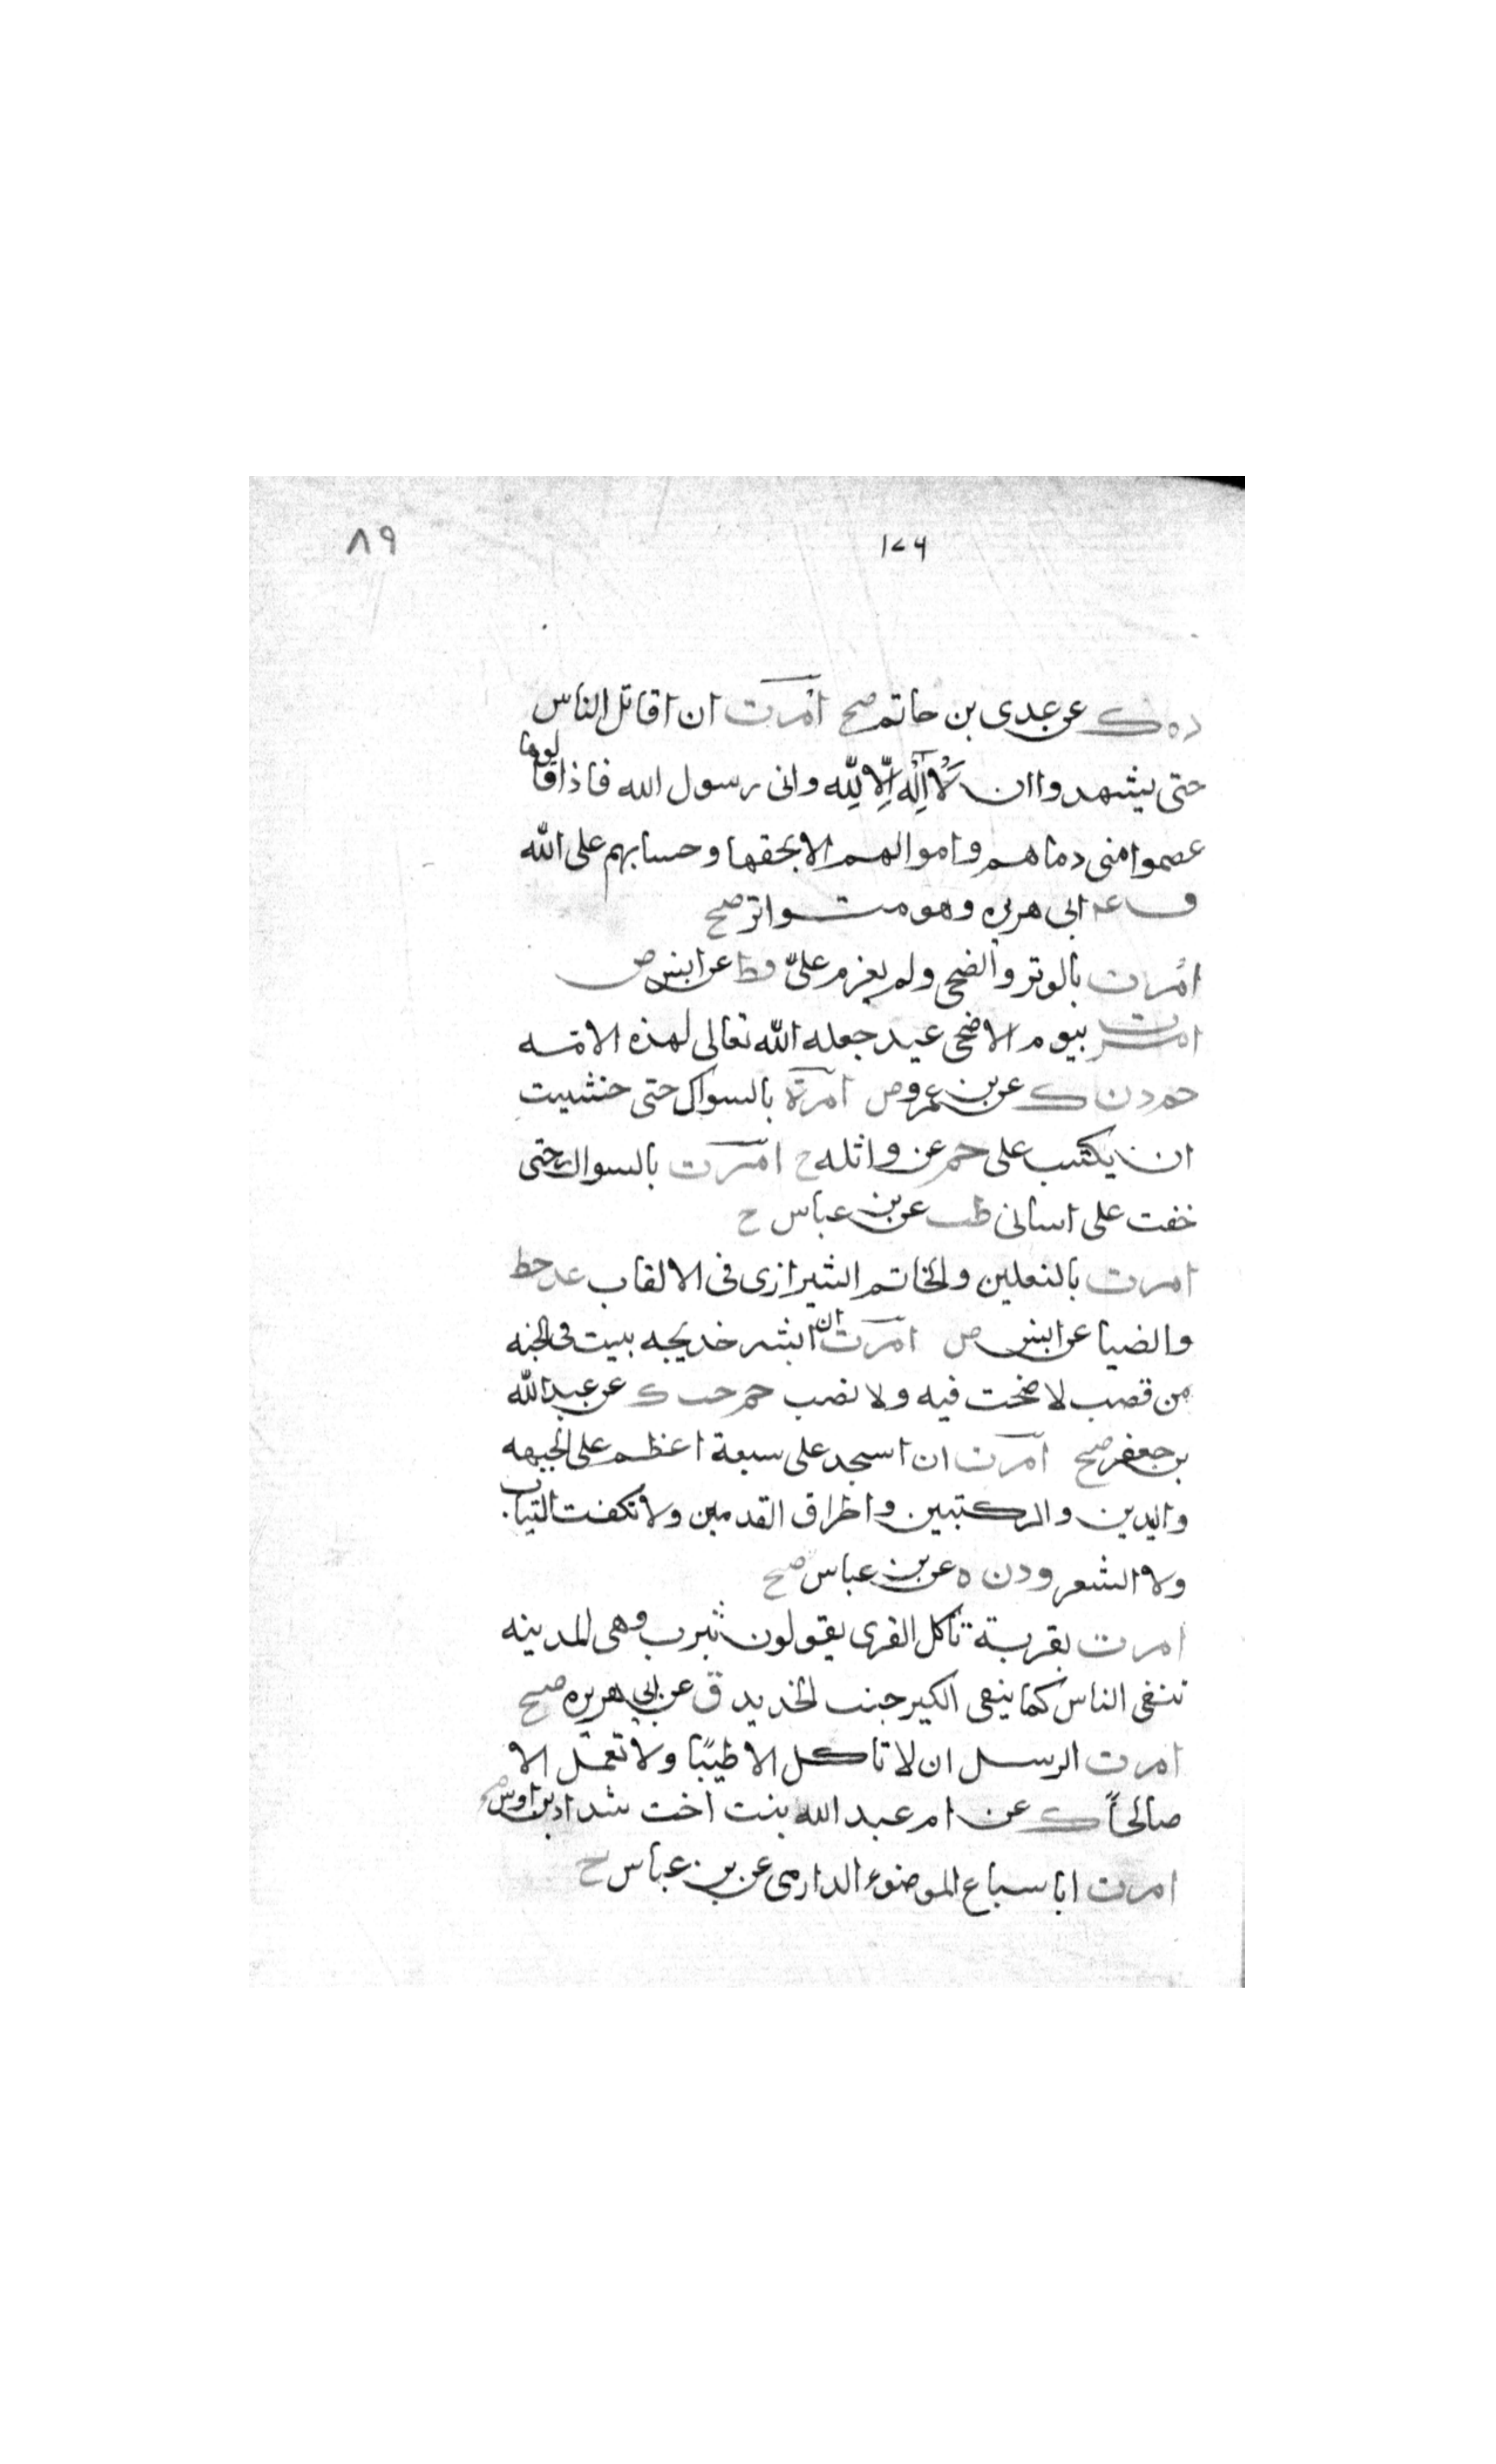 ١٧٩ ٨٩
د ه ك عن عدى بن حاتم صح امرت ان اقاتل الناس
حتى يشهدوا ان لا اله الا لله وانى رسول الله فاذا قالوها
عصموا منى دماهم واموالهم الا بحقها وحسابهم على الله
ق ع ابى هريره وهو متواتر صح
امرت بالوتر والضحى ولم يعزم على قط عن انس ض
امرت بيوم الاضحى عيد جعله الله تعالى لهذه الامه
حم د ن ك عن بن عمرو ض امرة بالسواك حتى خشيت
ان يكتب على حم عن واثله ح امرت بالسواك حتى
خفت على اسنانى طب عن بن عباس ح
امرت بالنعلين والخاتم الشيرازى فى الالقاب عد خط
والضيا عن انس ض امرت ان ابشر خديجه ببيت فى الجنه
من قصب لا صخت فيه ولا نصب حم حب ك عن عبد الله
بن جعفر صح امرت ان اسجد على سبعة اعظم على الجبهه
واليدين والركبتين واطراق القدمين ولا نكفت الثياب
ولا الشعر ق د ن ه عن بن عباس صح
امرت بقرية تاكل القرى يقولون يثرب وهى المدينه
تنفى الناس كما ينفى الكير خبث الحديد ق عن ابى هريره صح
امرت الرسل ان لا تاكل الا طيبًا ولا تعمل الا
صالحًا ك عن ام عبد الله بنت اخت شداد بن اوس صح
امرت اباسباغ الموضوء الدارمى عن بن عباس ح